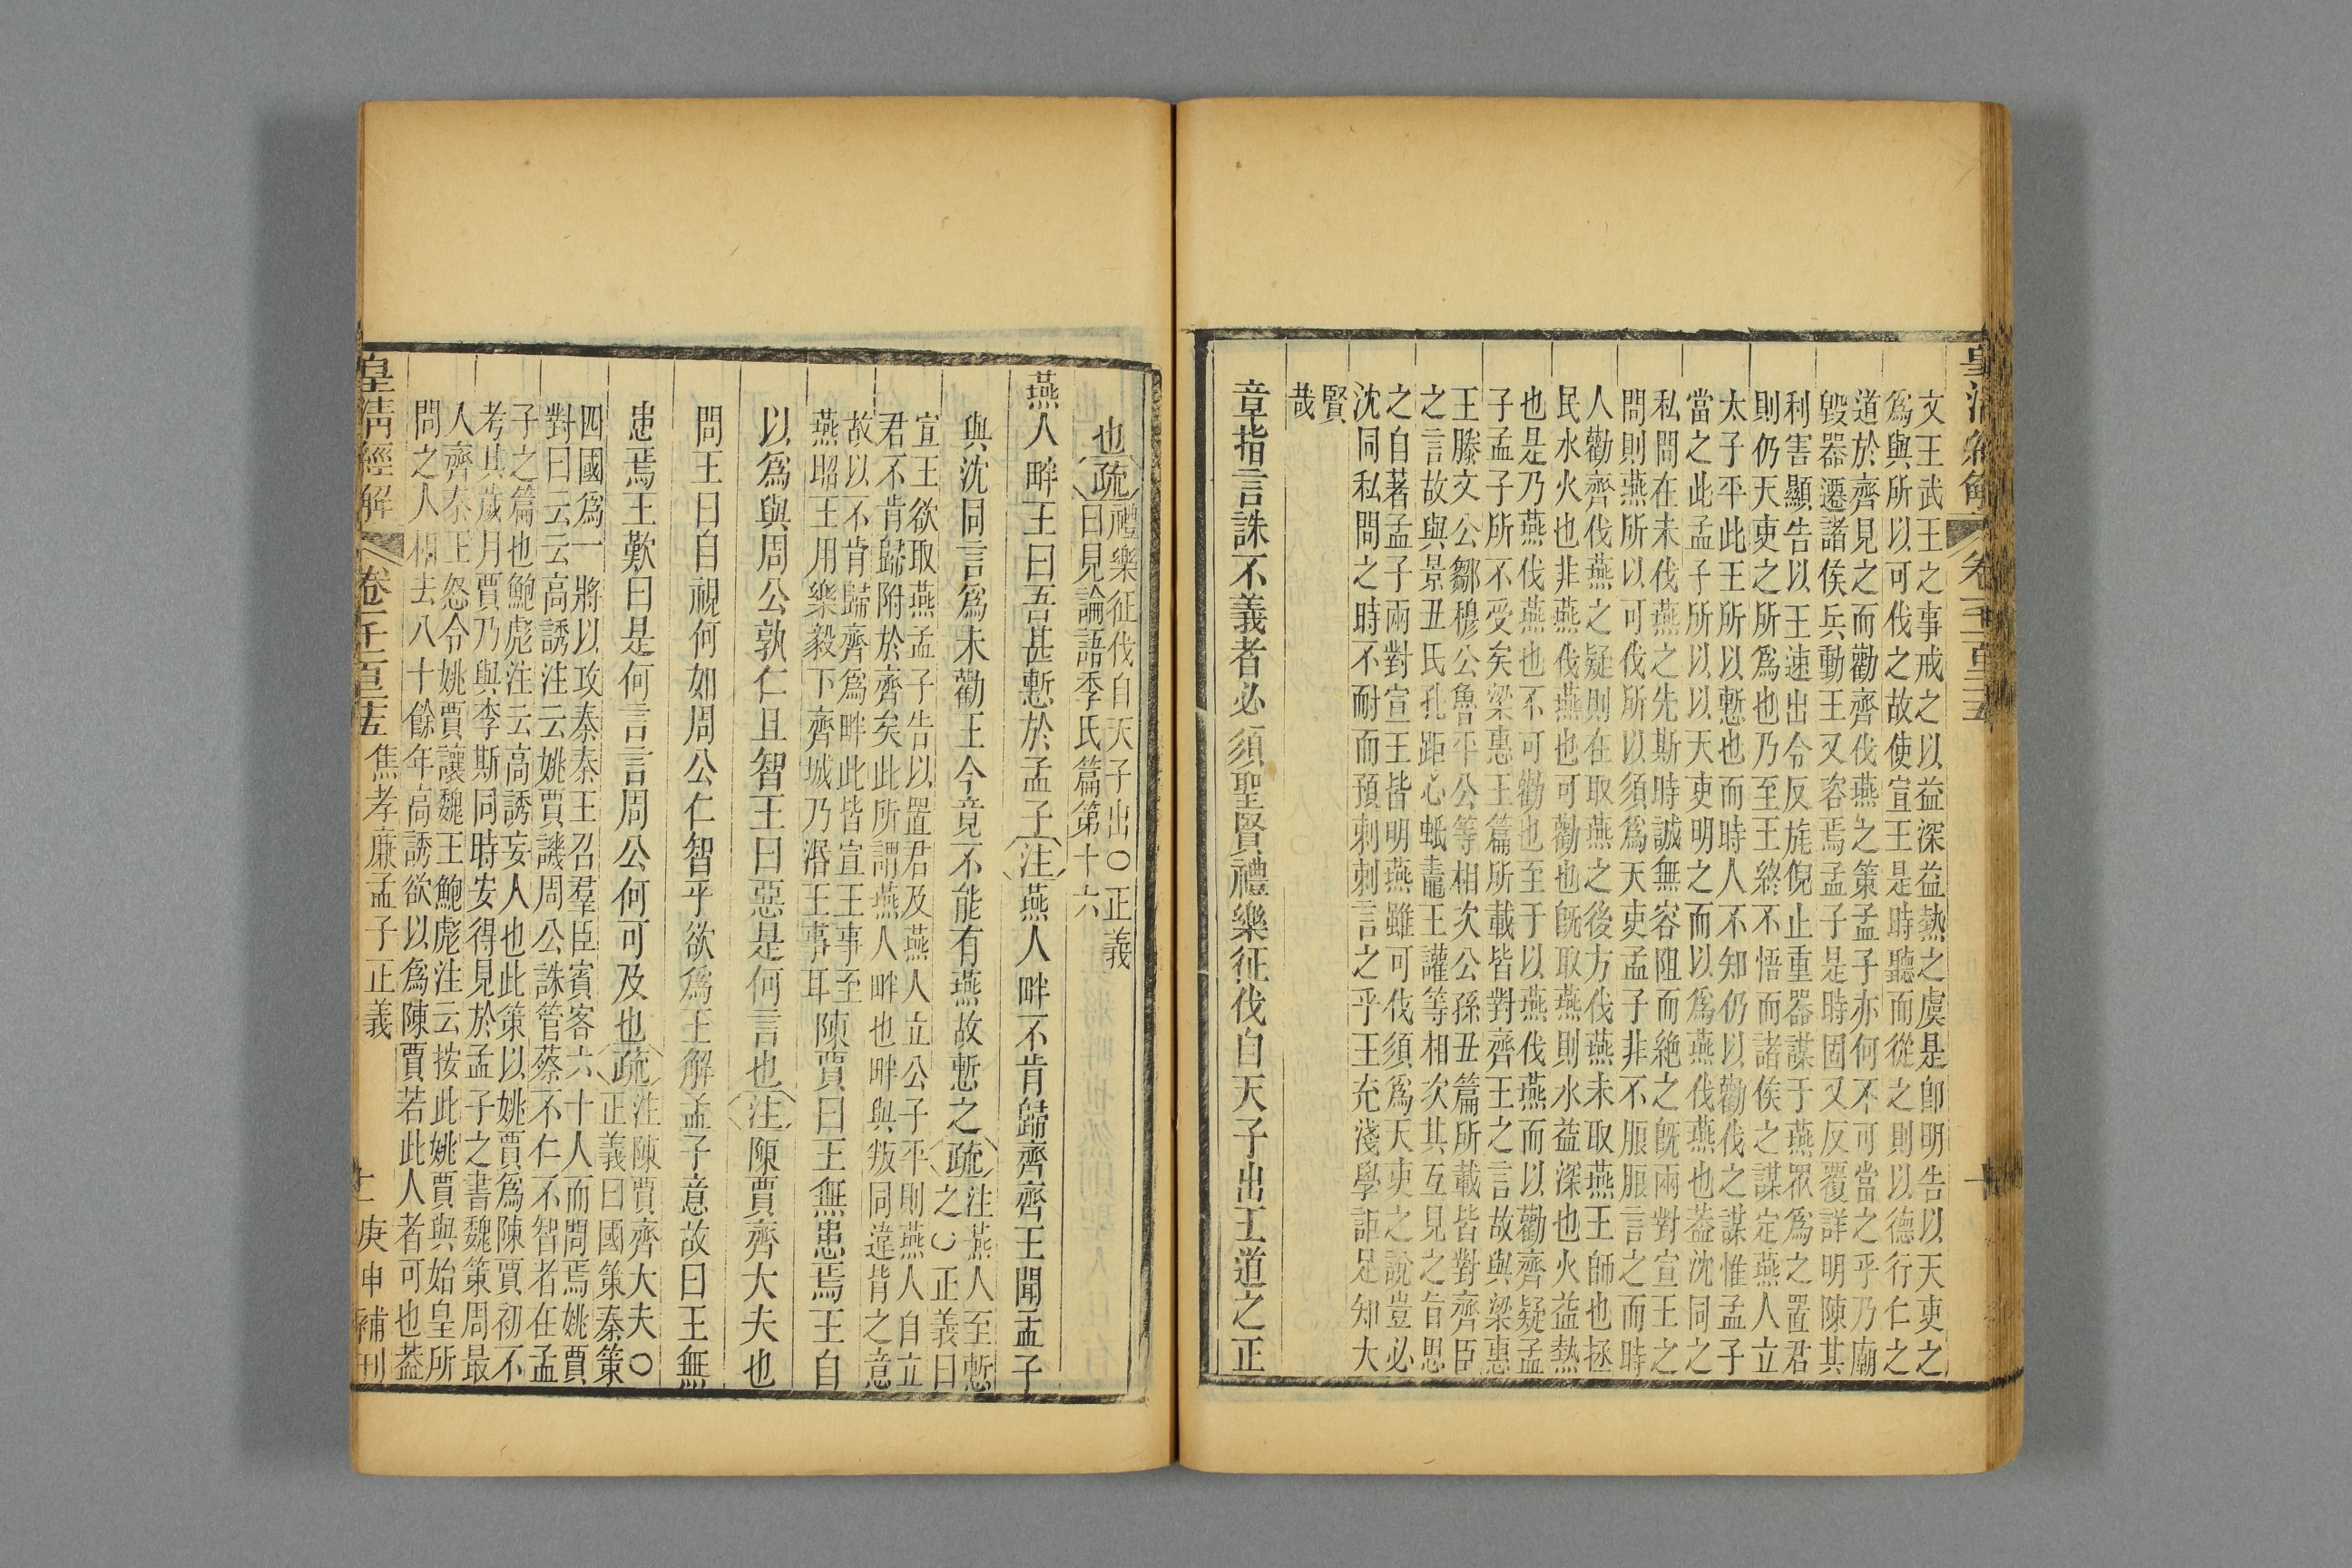 文王武王之事戒之以益深益熱之虞是卽明告以天吏之
爲與所以可伐之故使宣王是時聽而從之則以德行仁之
道於齊見之而勸齊伐燕之策孟子亦何不可當之乎乃廟
毀器遷諸侯兵動王又咨焉孟子是時固又反覆詳明陳其
利害顯告以王速出令反旄倪止重器謀于燕眾爲之置君
則仍天吏之所爲也乃至王終不悟而諸侯之謀定燕人立
太子平此王所以慙也而時人不知仍以勸伐之謀惟孟子
當之此孟子所以以天吏明之而以爲燕伐燕也葢沈同之
私問在未伐燕之先斯時誠無容阻而絕之旣兩對宣王之
問則燕所以可伐所以須爲天吏孟子非不脹脹言之而時
人勸齊伐燕之疑則在取燕之後方伐燕未取燕王師也拯
民水火也非燕伐燕也可勸也旣取燕則水益深也火益熱
也是乃燕伐燕也不可勸也至于以燕伐燕而以勸齊疑孟
子孟子所不受矣梁惠王篇所載皆對齊王之言故與梁惠
王滕文公鄒穆公魯平公等相次公孫丑篇所載皆對齊臣
之言故與景丑氏孔距心蚳鼃王讙等相次其互見之旨思
之自著孟子兩對宣王皆明燕雖可伐須爲天吏之說豈必
沈同私問之時不耐而預刺刺言之乎王充淺學詎足知大
賢
哉
章指言誅不義者必須聖賢禮樂征伐自天子出王道之正
皇清經解
也疏禮樂征伐自天子出○正義
曰見論語季氏篇第十六
燕人畔王曰吾甚慙於孟子注燕人畔不肯歸齊齊王聞孟子
與沈同言爲未勸王今竟不能有燕故慙之疏注燕人至慙
之○正義曰
宣王欲取燕孟子告以置君及燕人立公子平則燕人自立
君不肯歸附於齊矣此所謂燕人畔也畔與叛同違背之意
故以不肯歸齊爲畔此皆宣王事至
燕昭王用樂毅下齊城乃湣王事耳陳賈曰王無患焉王自
以爲與周公孰仁且智王曰惡是何言也注陳賈齊大夫也
問王曰自視何如周公仁智乎欲爲王解孟子意故曰王無
患焉王歎曰是何言言周公何可及也疏注陳賈齊大夫○
正義曰國策秦策
四國爲一將以攻秦秦王召羣臣賓客六十人而問焉姚賈
對曰云云高誘注云姚賈譏周公誅管蔡不仁不智者在孟
子之篇也鮑彪注云高誘妄人也此策以姚賈爲陳賈初不
考其歲月賈乃與李斯同時安得見於孟子之書魏策周最
入齊秦王怒令姚賈讓魏王鮑彪注云按此姚賈與始皇所
問之人相去八十餘年高誘欲以爲陳賈若此人者可也葢
皇清經解 卷一千一百二十五 焦孝廉孟子正義 十一 庚申補刊